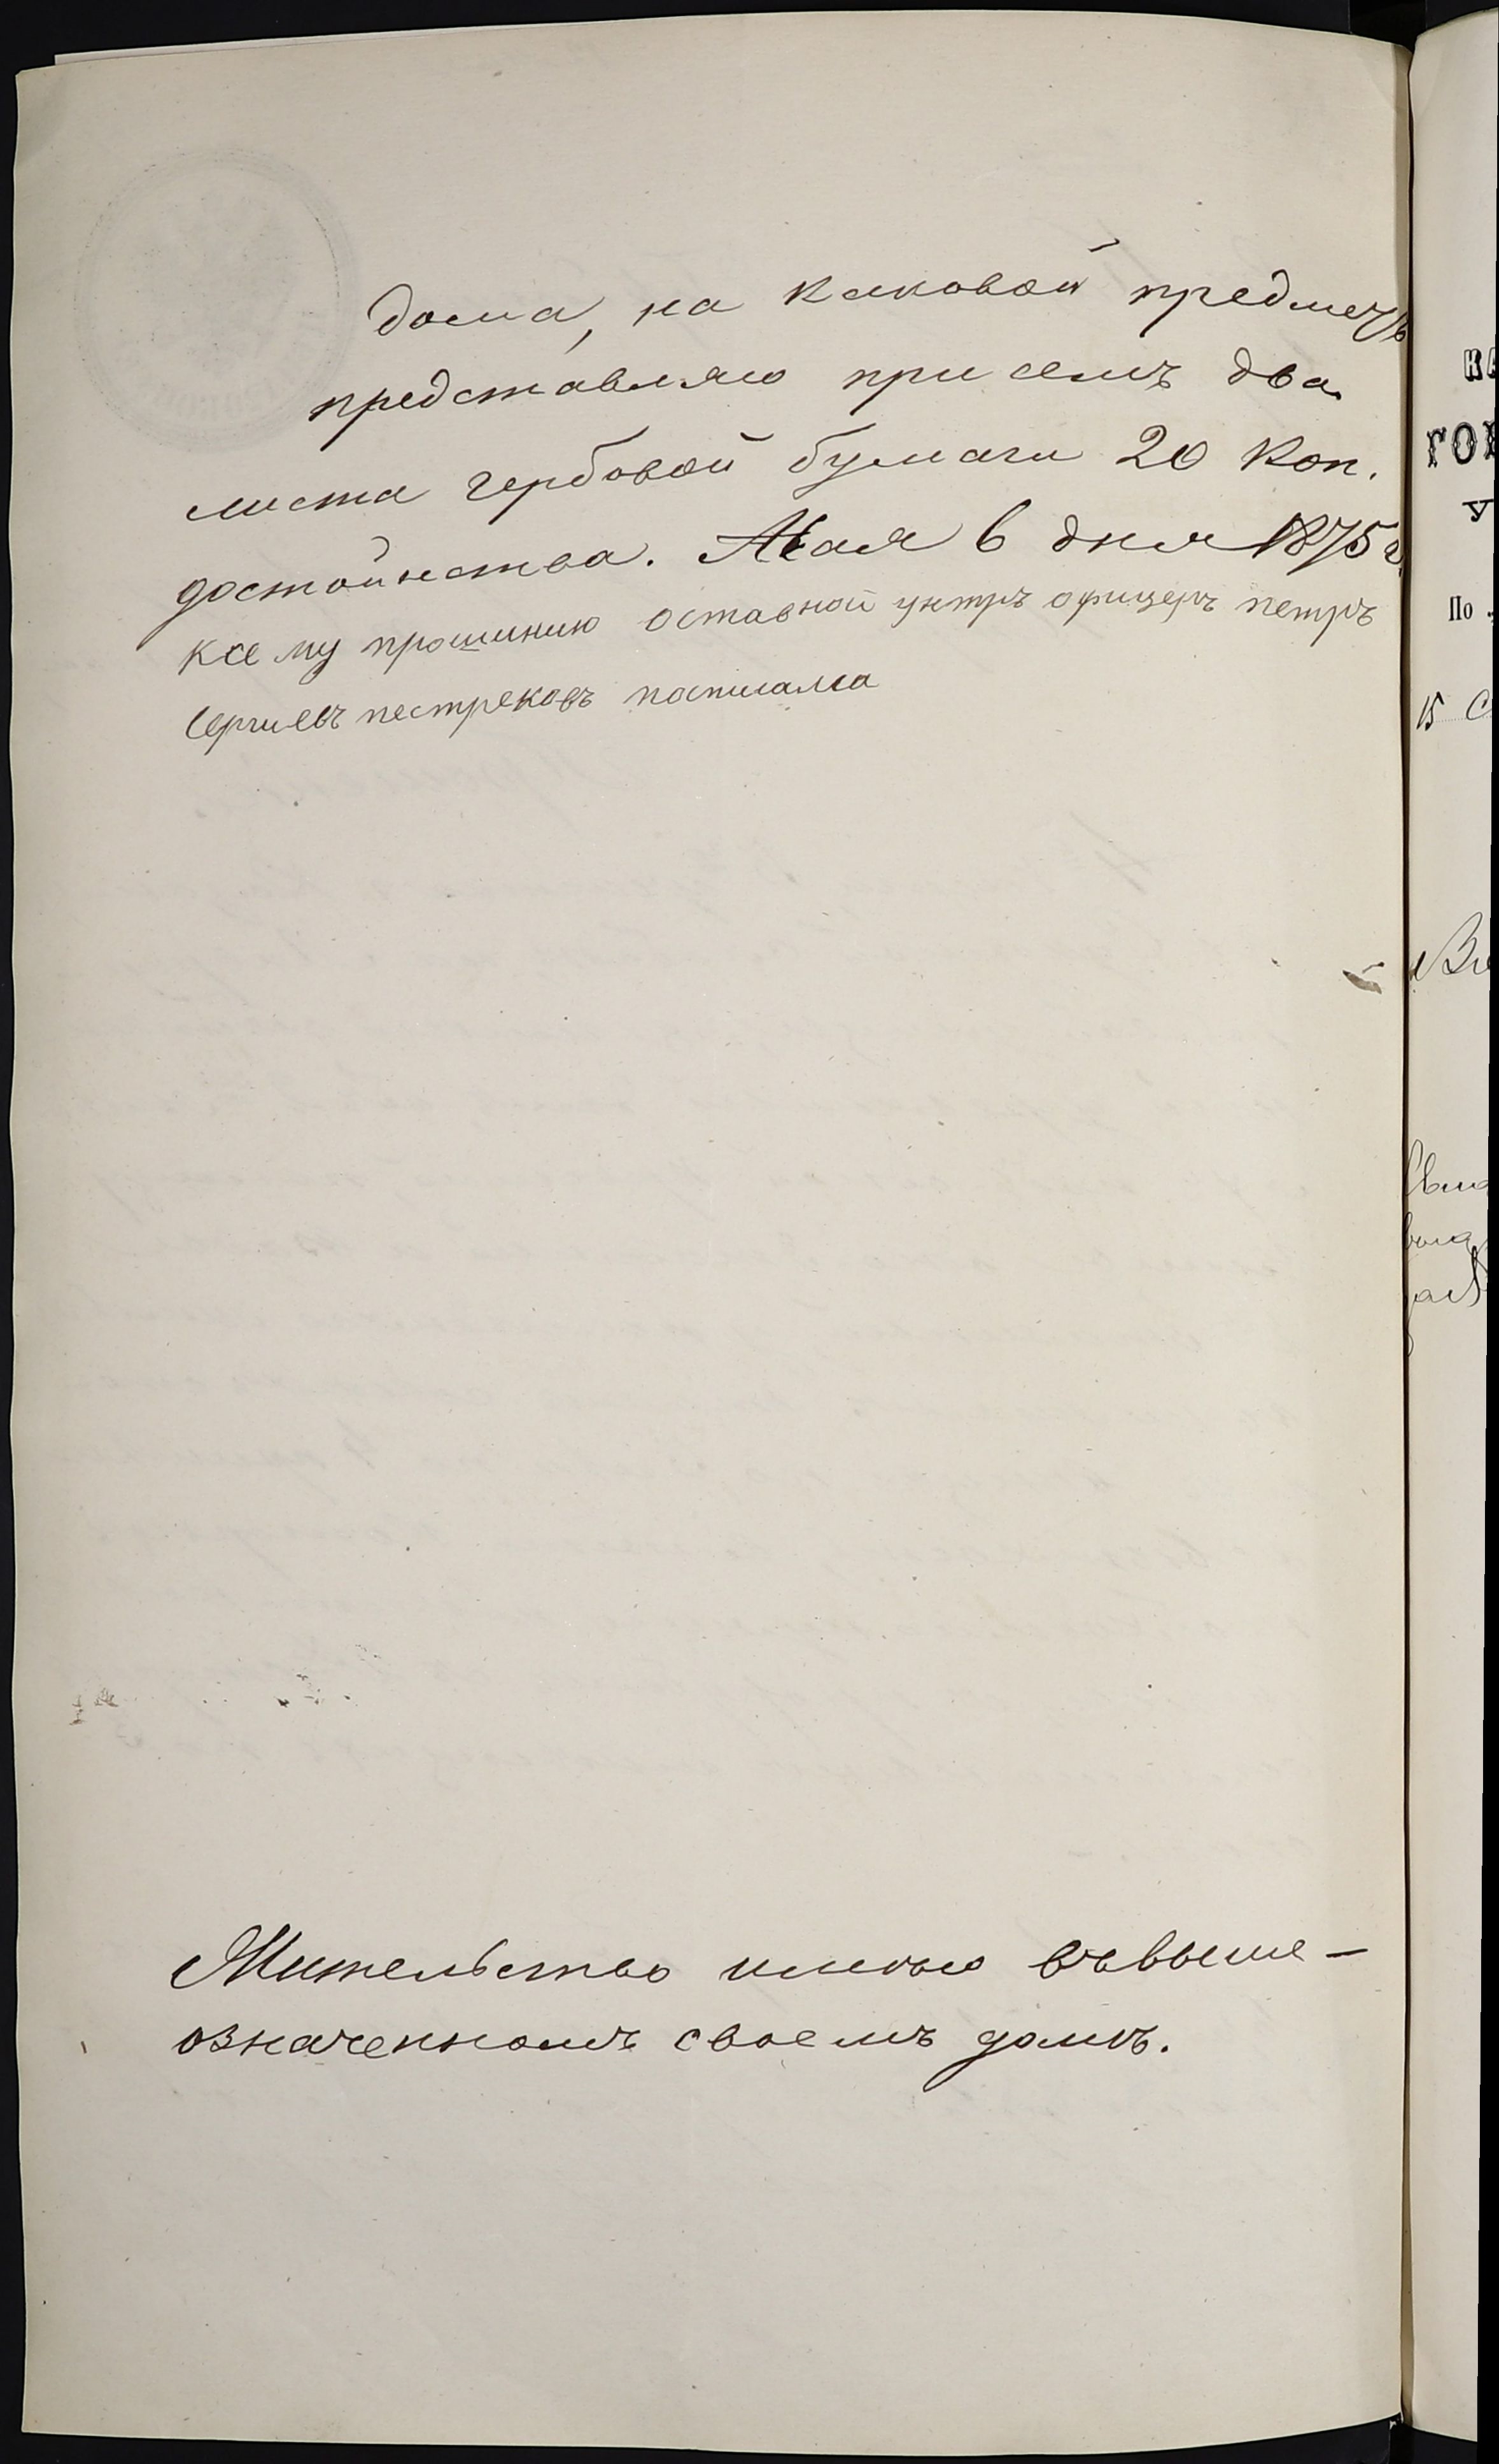 дома, на каковой предметъ
представляю при семъ два
листа гербовой бумаги 20 коп.
достоинства. Мая 6 дня 1875 г.
ксему прошинию оставной унтръ офицеръ петръ
Сергиевъ пестрековъ
Жительство имѣю въ выше-
означенномъ своемъ домѣ.
КА
ГОР
У
По
15 С